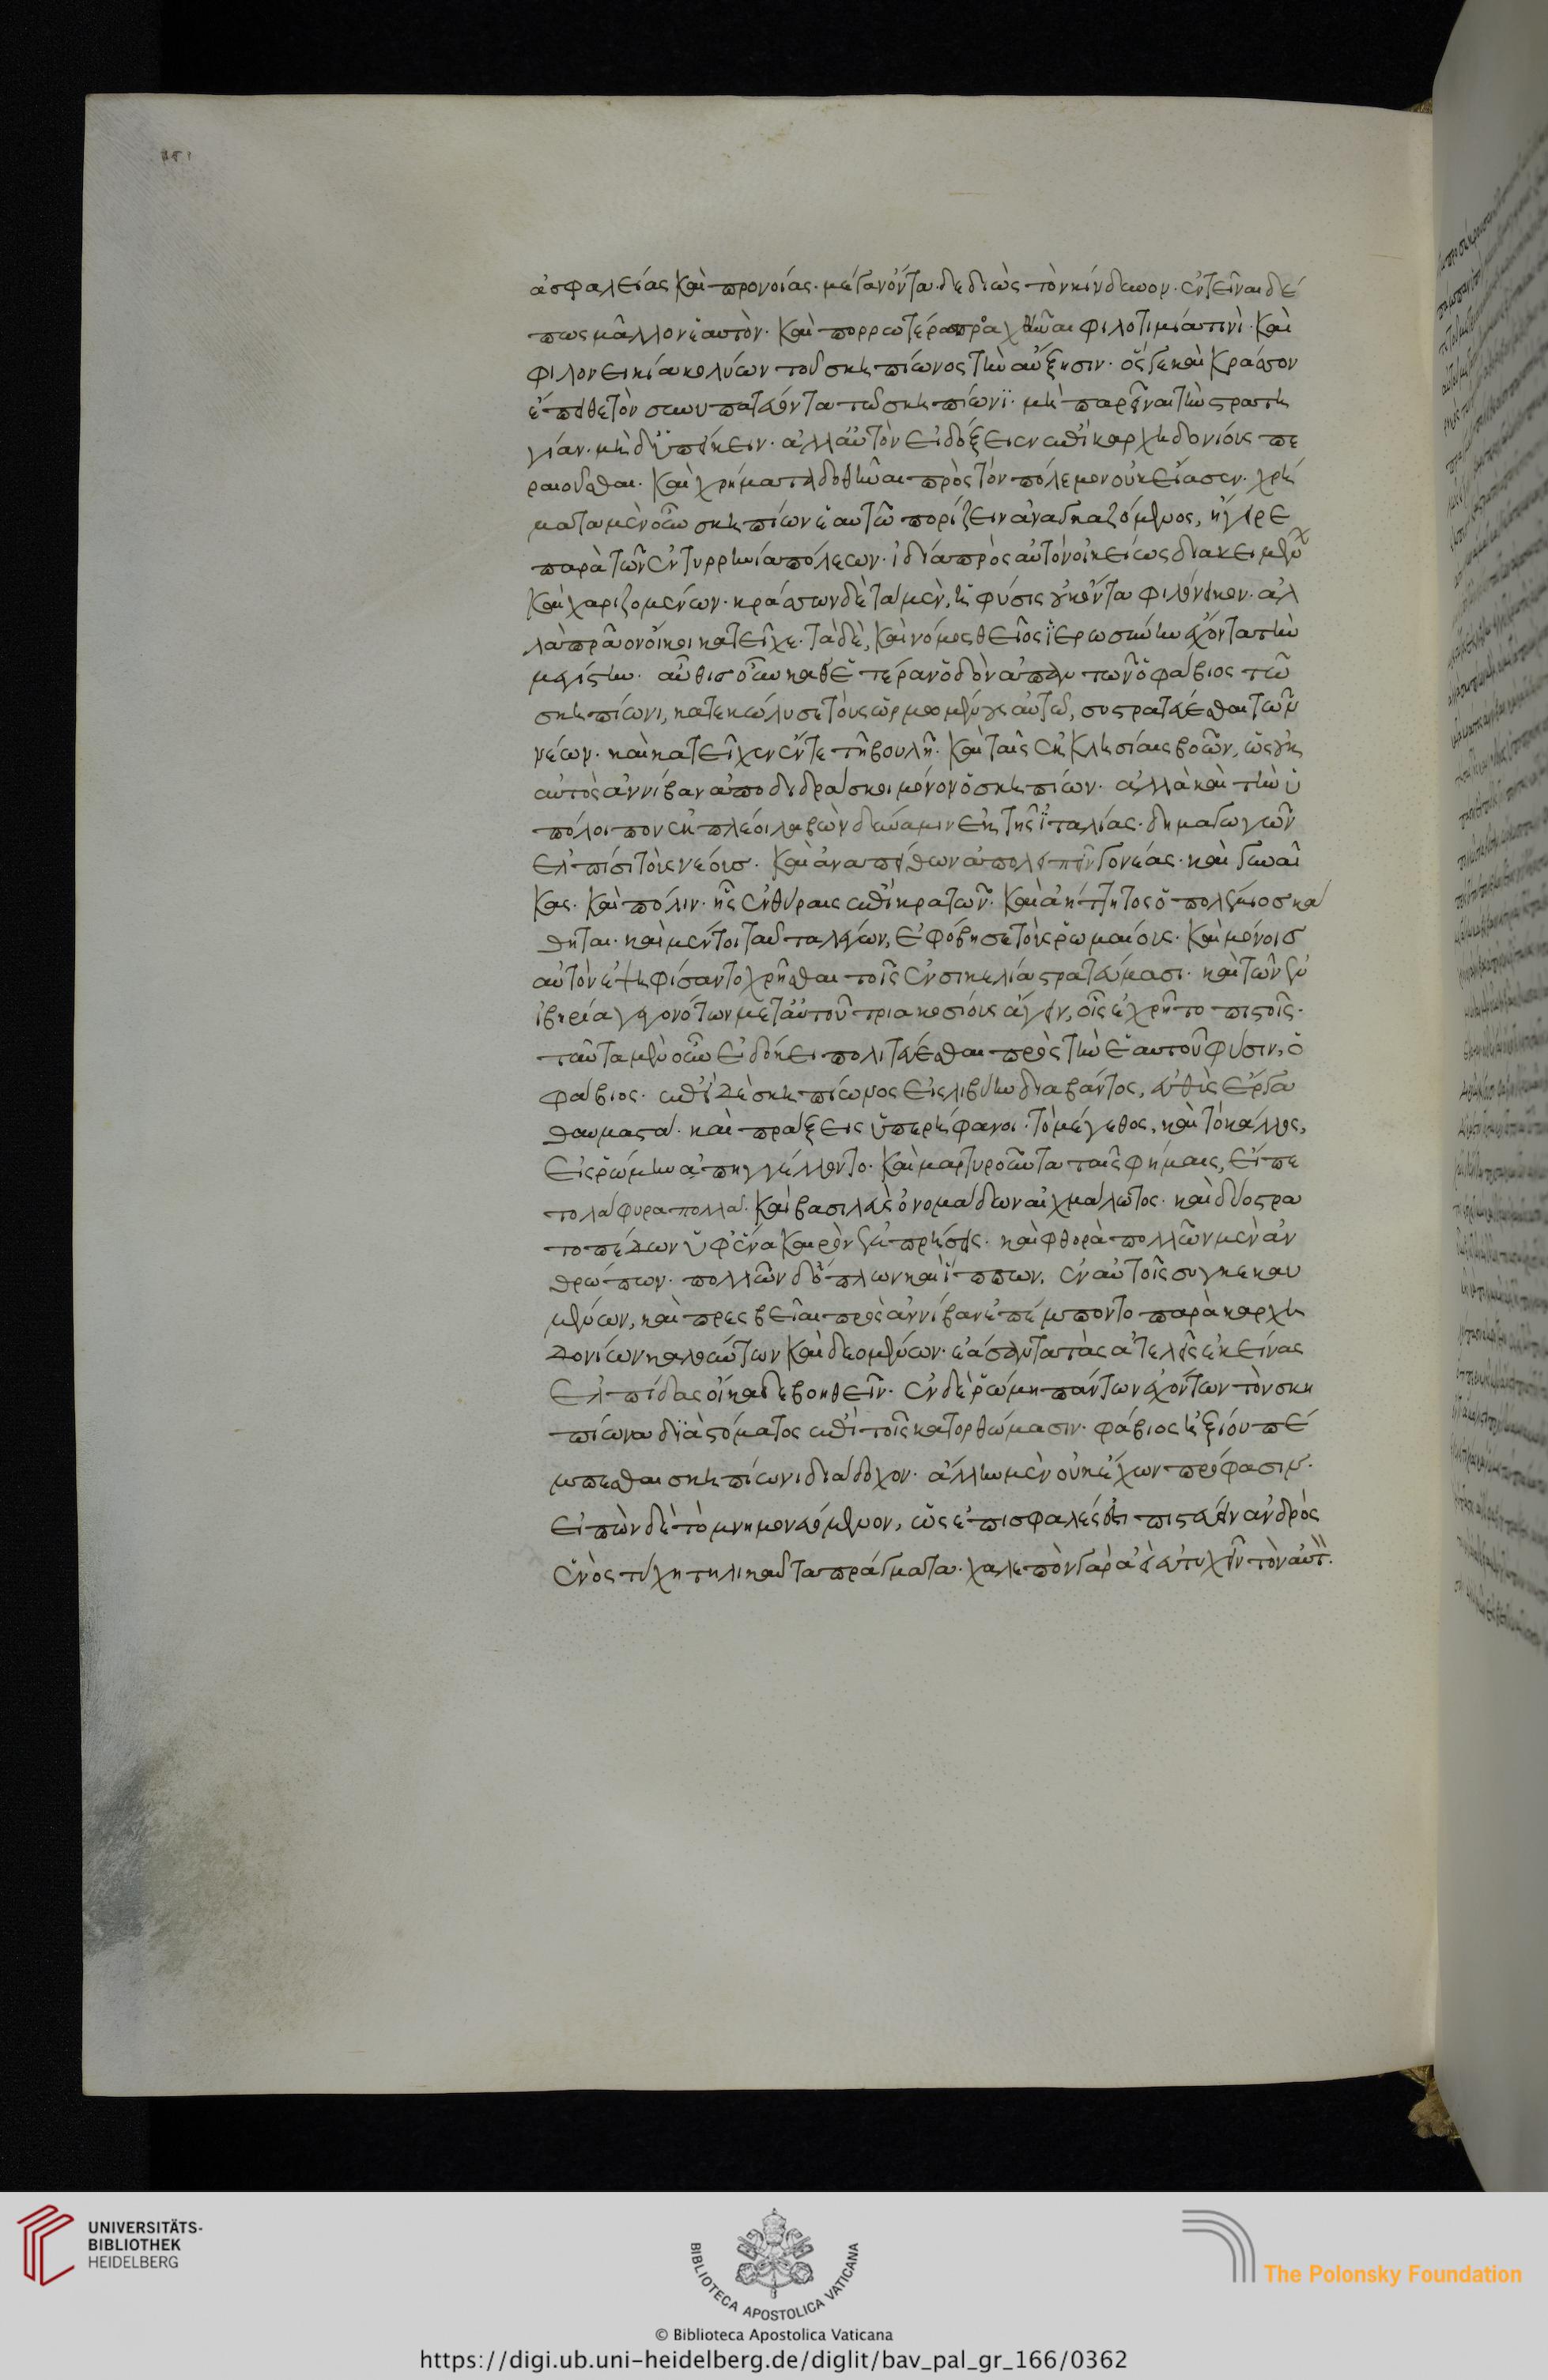 ἀσφαλείας καὶ προνοίας. μέγαν ὄντα δεδιὼς τὸν κίνδυνον. ἐντεῖναι δέ
πως μᾶλλον ἑαυτὸν. καὶ πορρωτέρω προαχθῆναι φιλοτιμία τινὶ. καὶ
φιλονεικία κωλύων τοῦ σκηπίωνος τὴν αὔξησιν. ὅς γε καὶ κράσσον
ἔπειθε τὸν συνυπατεύοντα τῶ σκηπίωνϊ. μὴ παρεῖναι τὴν στρατη
γίαν. μὴ δ' ὑπείκειν. ἀλλ' αὐτὸν εἰ δόξειεν ἐπὶ καρχηδονίους πε
ραιοῦσθαι. καὶ χρήματα δοθῆναι πρὸς τὸν πόλεμον οὐκ εἴασεν. χρή
ματα μὲν οὖν σκηπίων ἑαυτῶ πορίζειν ἀναγκαζόμενος, ἤγειρε
παρὰ τῶν ἐν τυρρηνία πόλεων. ἰδία πρὸς αὐτὸν οἰκείως διακειμένων
καὶ χαριζομένων. κράσσον δὲ τὰ μὲν, ἡ φύσις οὐκ ὄντα φιλόνεικον. ἀλ
λὰ πρᾶον οἴκοι κατεῖχε. τὰ δὲ, καὶ νόμος θεῖος ἱερωσύνην ἔχοντα τὴν
μεγίστην. αὖθις οὖν καθ' ἑτέραν ὁδὸν ἀπαντῶν ὁ φάβιος τῶ
σκηπίωνι, κατεκώλυσε τοὺς ὁρμωμένους αὐτῶ, συστρατεύεσθαι τῶν
νέων. καὶ κατεῖχεν ἔν τε τῆ βουλῆ. καὶ ταῖς ἐκκλησίαις βοῶν, ὡς οὐκ
αὐτὸς ἀννίβαν ἀποδιδράσκοι μόνον ὁ σκηπίων. ἀλλὰ καὶ τὴν ὑ
πόλοιπον ἐκπλέοι λαβὼν δύναμιν ἐκ τῆς ἰταλίας. δημαγωγῶν
ἐλπίσι τοὺς νέους. καὶ ἀναπείθων ἀπολιπεῖν γονέας. καὶ γυναῖ
κας. καὶ πόλιν. ἧς ἐν θύραις ἐπικρατῶν. καὶ ἀήττητος ὁ πολέμιος κά
θηται. καὶ μέντοι ταῦτα λέγων, ἐφόβησε τοὺς ῥωμαίους. καὶ μόνοις
αὐτὸν ἐψηφίσαντο χρῆσθαι τοῖς ἐν σικελία στρατεύμασι. καὶ τῶν ἐν
ἰβηρία γεγονότων μετ' αὐτοῦ τριακοσίους ἄγειν, οἷς ἐχρῆτο πιστοῖς.
ταῦτα μὲν οὖν ἐδόκει πολιτεύεσθαι πρὸς τὴν ἑαυτοῦ φύσιν, ὁ
φάβιος. ἐπεὶ δὲ σκηπίωνος εἰς λιβύην διαβάντος, εὐθὺς ἔργα
θαυμαστὰ. καὶ πράξεις ὑπερήφανοι. τὸ μέγεθος, καὶ τὸ κάλλος,
εἰς ῥώμην ἀπηγγέλλοντο. καὶ μαρτυροῦντα ταῖς φήμαις, εἵπε
το λάφυρα πολλὰ. καὶ βασιλεὺς ὁ νομάδων αἰχμάλωτος. καὶ δύο στρα
τοπέδων ὑφ' ἕνα καιρὸν ἐμπρήσεις. καὶ φθορὰ πολλῶν μὲν ἀν
θρώπων. πολλῶν δ' ὅπλων καὶ ἵππων. ἐν αὐτοῖς συγκεκαυ
μένων, καὶ πρεσβεῖαι πρὸς ἀννίβαν ἐπέμποντο παρὰ καρχη
δονίων καλούντων καὶ δεομένων. ἐάσαντα τὰς ἀτελεῖς ἐκείνας
ἐλπίδας οἴκαδε βοηθεῖν. ἐν δὲ ῥώμη πάντων ἐχόντων τὸν σκη
πίωνα διὰ στόματος ἐπὶ τοῖς κατορθώμασιν. φάβιος ἠξίου πέ
μπεσθαι σκηπίωνι διάδοχον. ἄλλην μὲν οὐκ ἔχων πρόφασιν.
εἰπὼν δὲ τὸ μνημονευόμενον, ὡς ἐπισφαλές ἐστι πιστεύειν ἀνδρὸς
ἑνὸς τύχη τηλικαῦτα πράγματα. χαλεπὸν γὰρ ἀεὶ εὐτυχεῖν τὸν αὐτ.
UNIVERSITÄTS-
BIBLIOTHEK
HEIDELBERG
BIBLIOTECA APOSTOLICA VATICANA
The Polonsky Foundation
© Biblioteca Apostolica Vaticana
https://digi.ub.uni-heidelberg.de/diglit/bav_pal_gr_166/0362